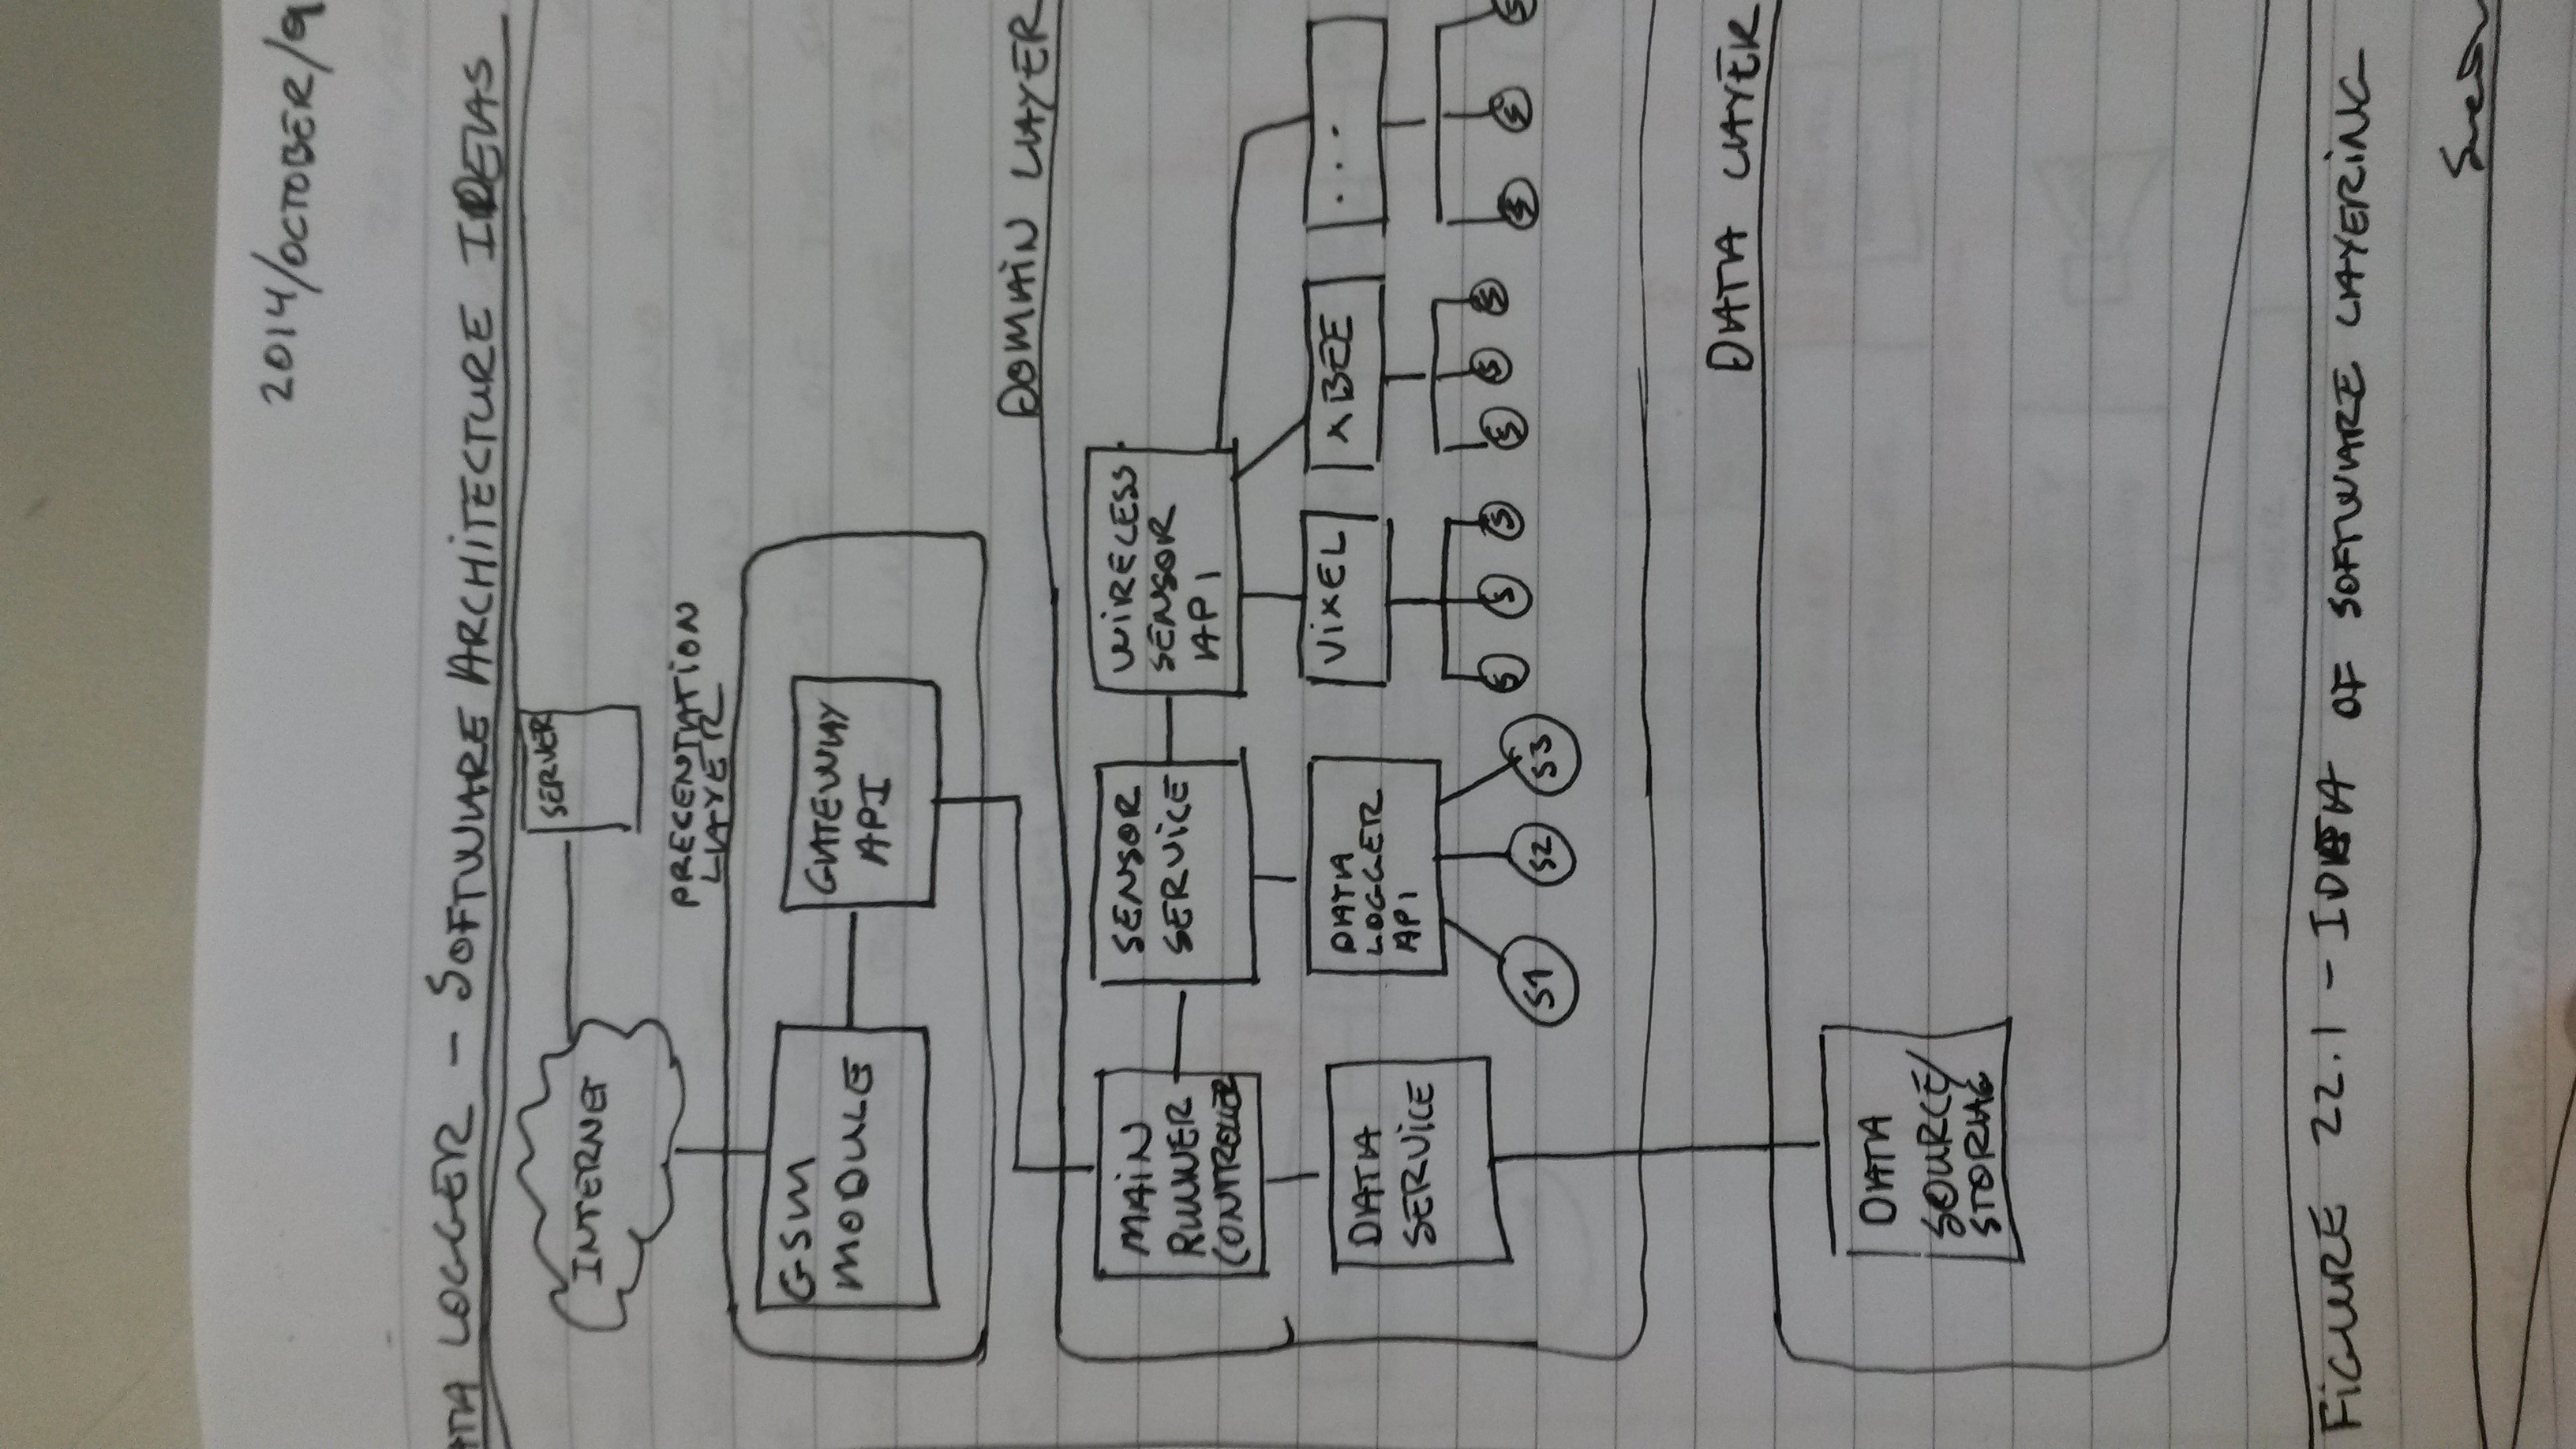 2014/OCTOBER/9
ATA LOGGER - SOFTWARE ARCHITECTURE IDEAS
INTERNET
SERVER
PRECENTATION
LAYER
GSM
MODULE
GATEWAY
API
DOMAIN LAYER
MAIN
RUNNER
CONTROLLER
SENSOR
SERVICE
WIRELESS
SENSOR
API
DATA
SERVICE
DATA
LOGGER
API
ViXEL
XBEE
...
S1
S2
S3
S
S
S
S
S
S
S
S
S
DATA LAYER
DATA
SOURCE/
STORAG
FIGURE 22.1 - IDEA OF SOFTWARE LAYERING